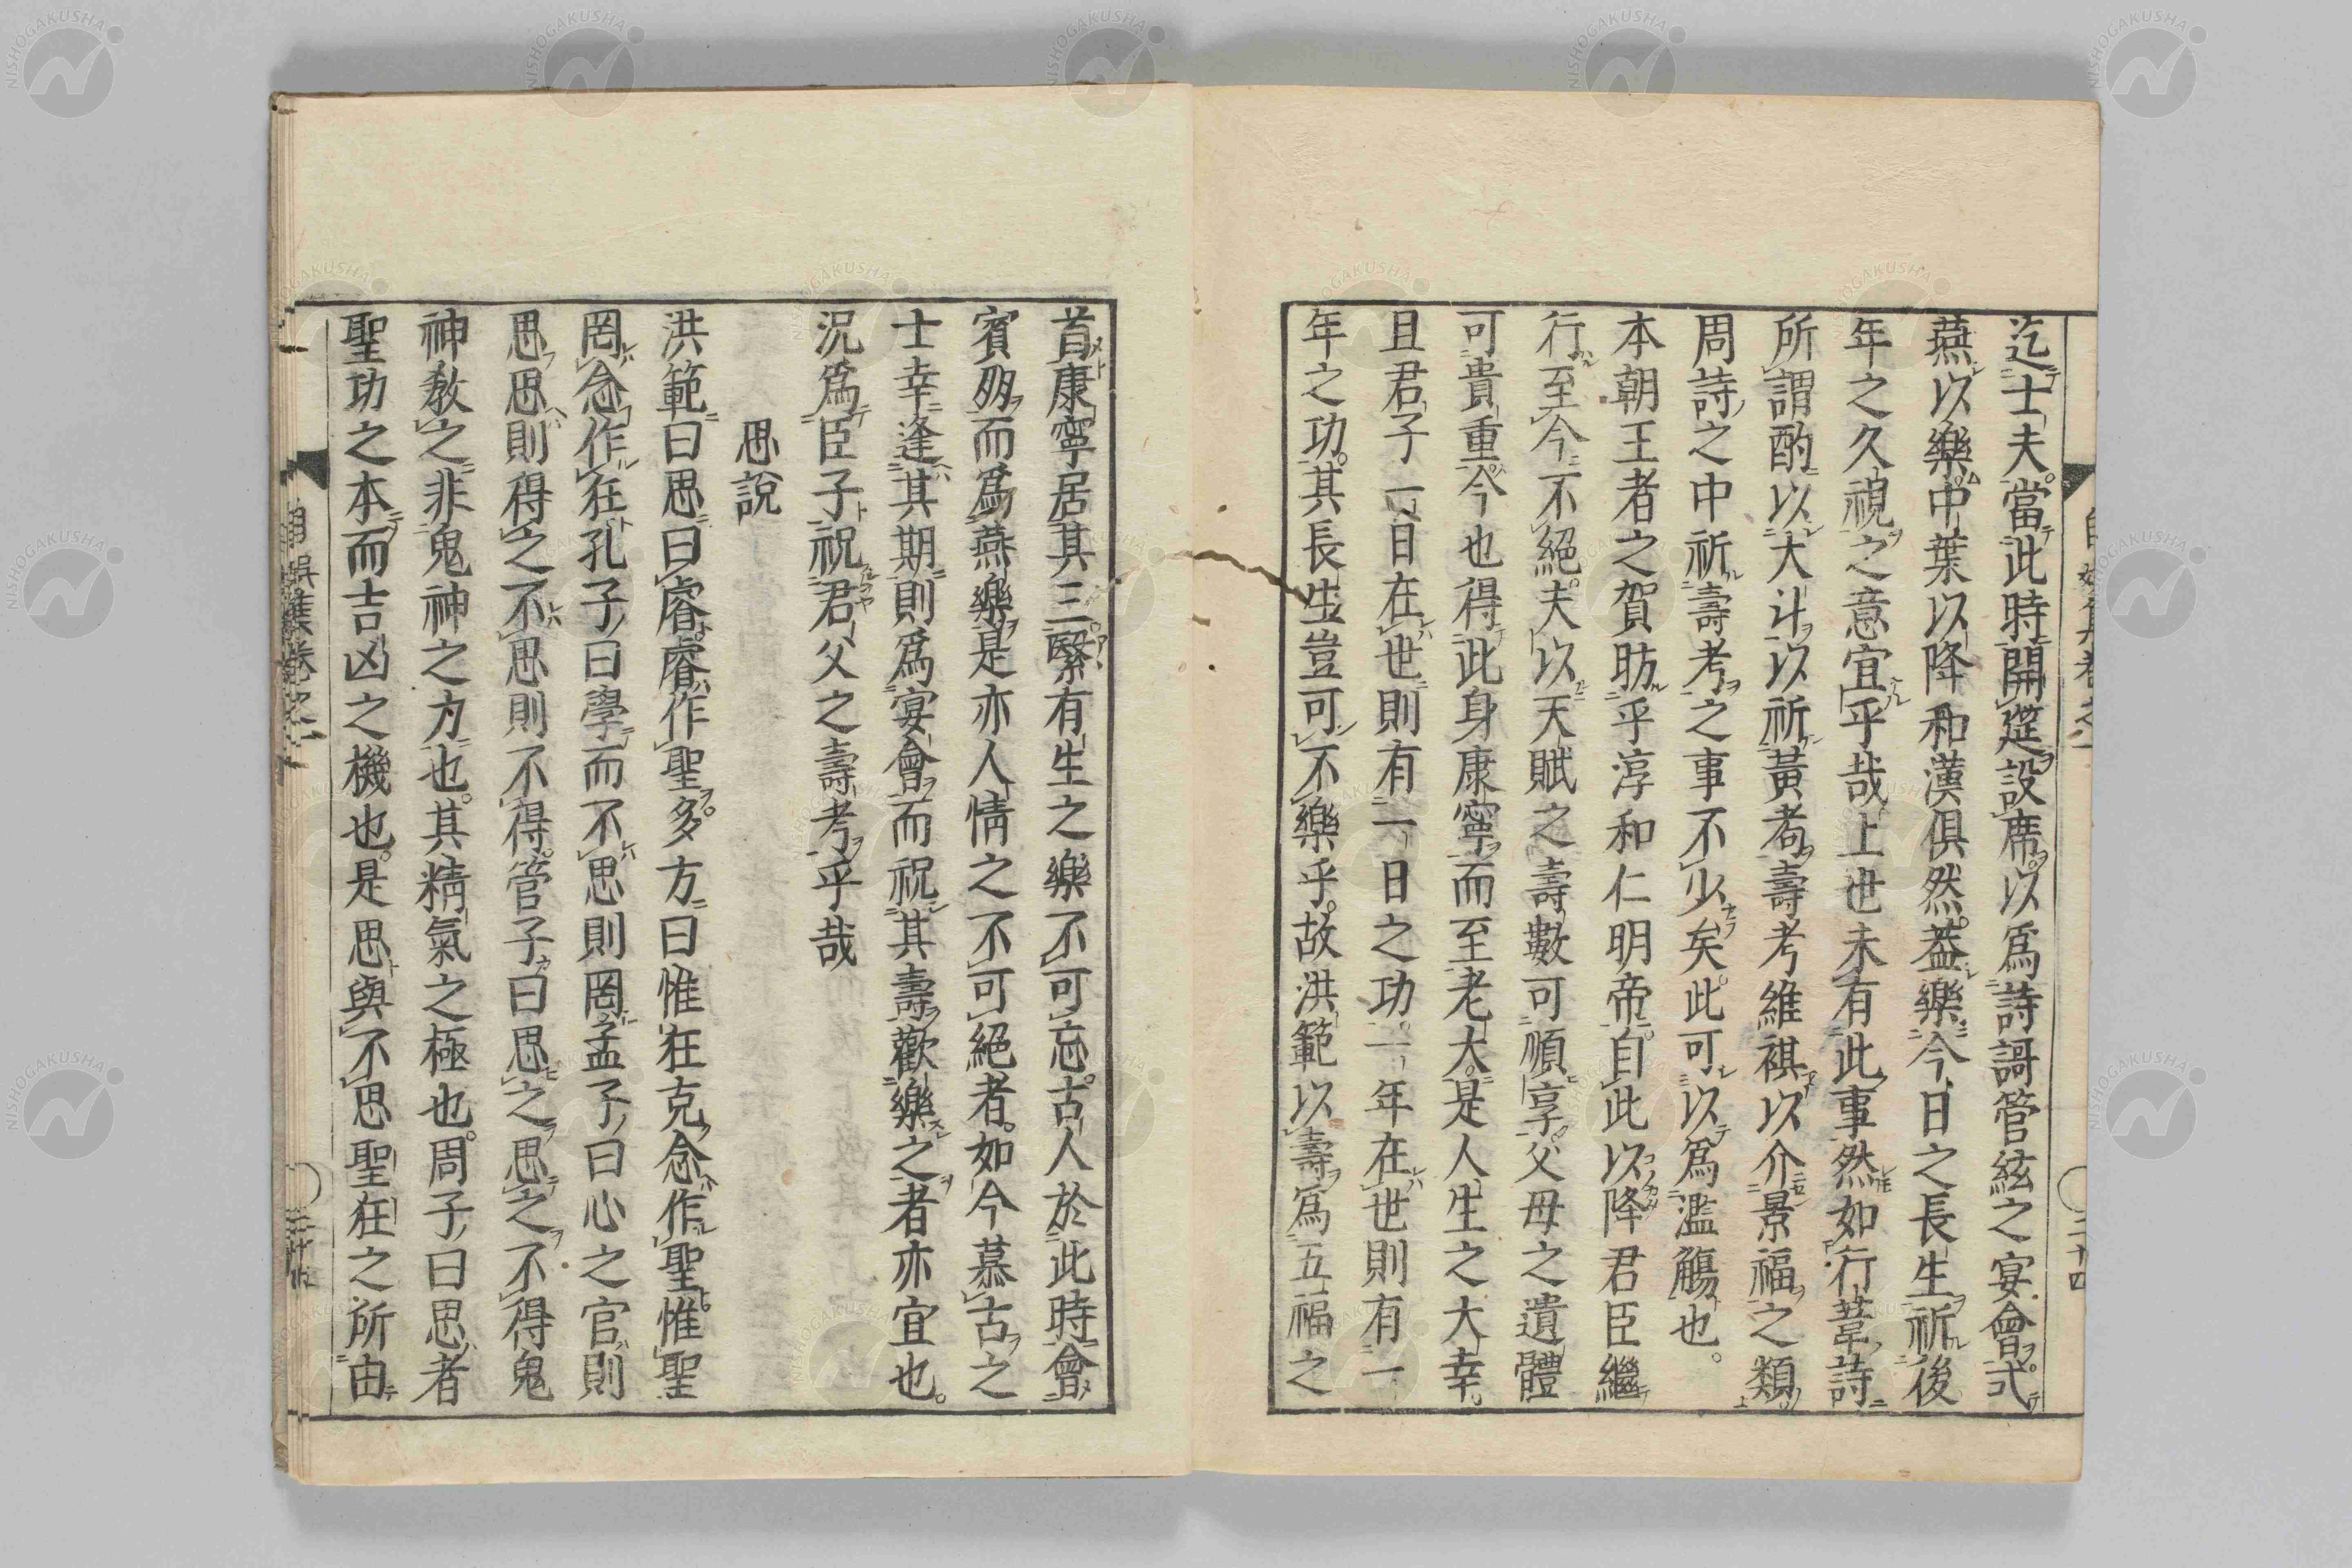 迄士夫當此時開筵設席以爲詩謌管絃之宴會式
燕以樂中葉以降和漢俱然葢樂今日之長生祈後
年之久視之意宜乎哉上世未有此事然如行葦詩
所謂酌以大斗以祈黃耈壽考維祺以介景福之類
周詩之中祈壽考之事不少矣此可以爲濫觴也
本朝王者之賀昉乎淳和仁明帝自此以降君臣繼
行至今不絕夫以天賦之壽數可順享父母之遺體
可貴重今也得此身康寧而至老大是人生之大幸
且君子一日在世則有一日之功一年在世則有一
年之功其長生豈可不樂乎故洪範以壽爲五福之
首康寧居其三緊有生之樂不可忘古人於此時會
賓朋而爲燕樂是亦人情之不可絕者如今慕古之
士幸逢其期則爲宴會而祝其壽歡樂之者亦宜也
況爲臣子祝君父之壽考乎哉
思說
洪範曰思曰睿睿作聖多方曰惟狂克念作聖惟聖
罔念作狂孔子曰學而不思則罔孟子曰心之官則
思思則得之不思則不得管子曰思之思之不得鬼
神教之非鬼神之力也其精氣之極也周子曰思者
聖功之本而吉凶之機也是思與不思聖狂之所由